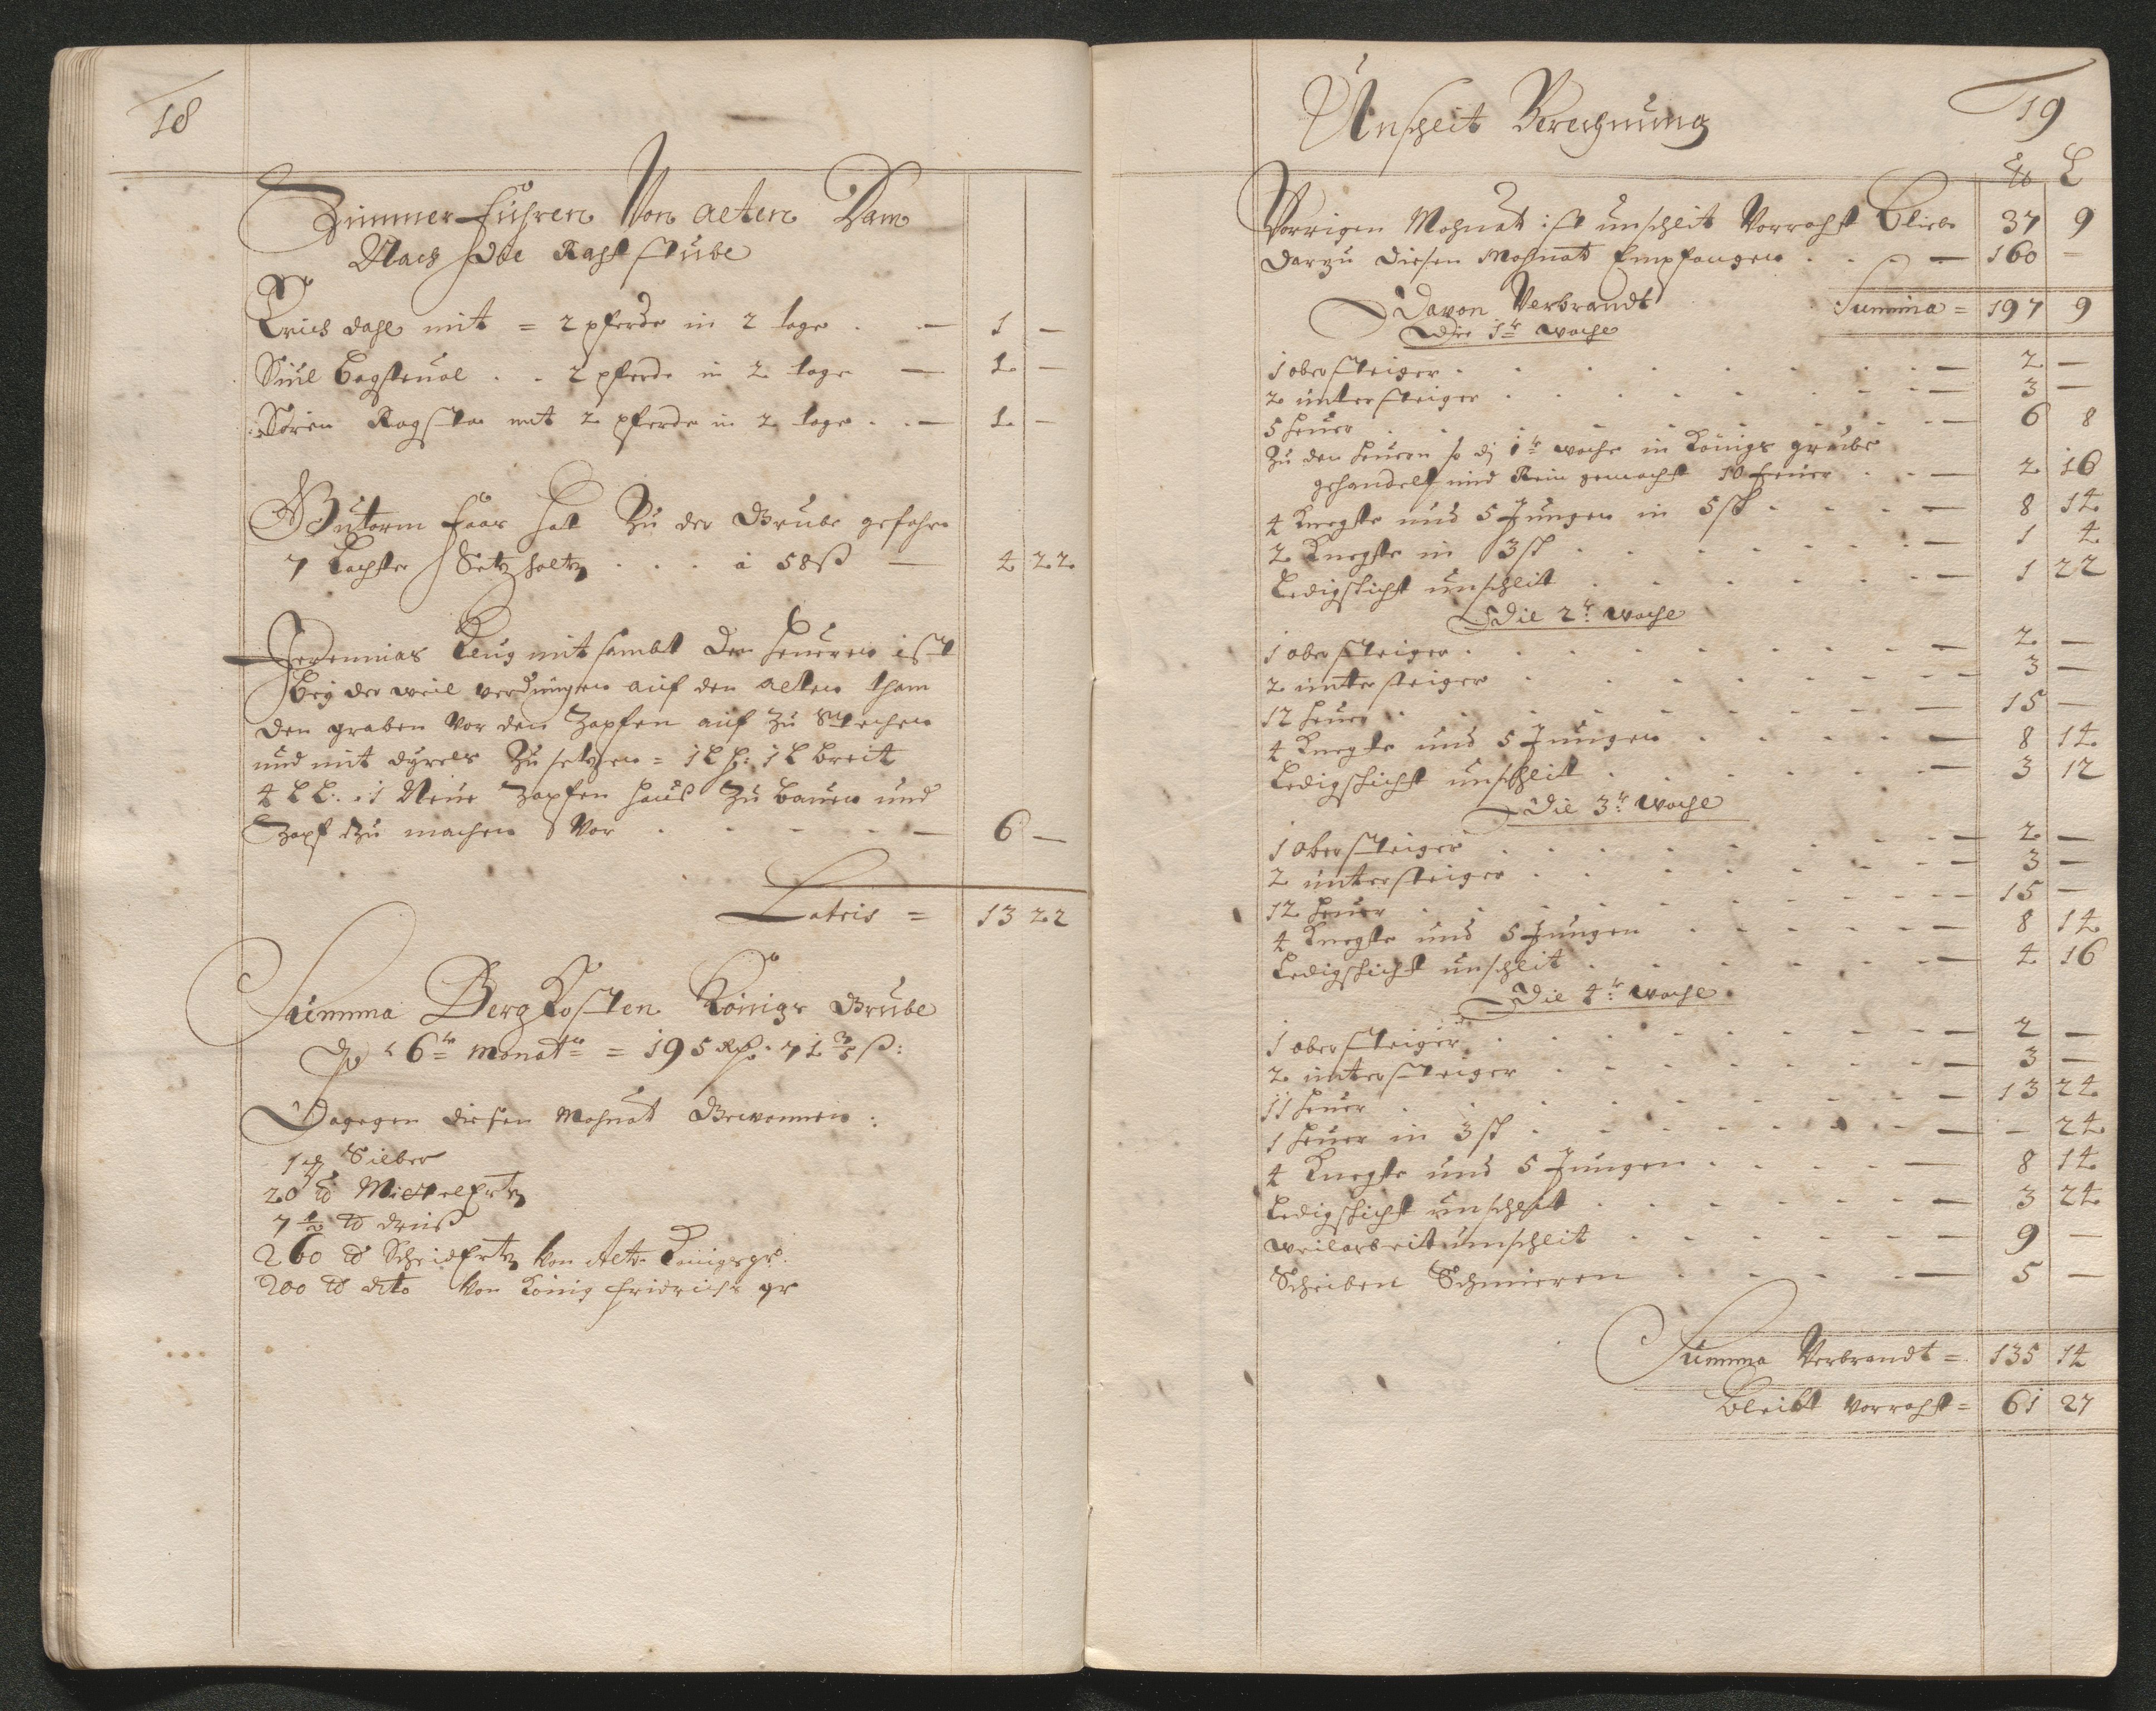 18
Zimmer Führen Von alten Dam
Nach der Rahtstube
Erich dahl mit = 2 pferde in 2 tage . — 1 —
2 pferde in 2 tage — 1 —
Sören mit 2 pferde in 2 tage . . — 1 —
Gutorm Foss hat Zu der Grube gefahren
7 Lachter Setzholtz . . . à 58 ß — 4 22
Jeremias mit sambt den heueren ist
bey der weil verdungen auf den alten tham
den graben Vor den Zapfen auf Zu Stechen
und mit Zu setzen = 1 L h: 1 L breit
4 L L: . 1 Neue Zapfen haus Zu bauen und
Zapf Zu machen Vor . . . . — 6 —
Lateris = 13 22
Summa BergKosten Königs Grube
6te monat = 195 71 ß:
Dagegen diesen Mohnat Gewonnen:
Silber
20 Mittelertz
7 1/2
260 Scheidertz Von Alte Königsgr.
200 dito Von König Fridrichs gr
19
Unschlit Berechnung
℔ L
Vorrigen Mohnat ist unschlit Vorraht blieben 37 9
Darzu diesen Mohnat Empfangen . . . — 160 —
Summa = 197 9
Davon Verbrandt
Die 1te woche
1 obersteiger . . . . . — 2 —
2 untersteiger . . . . . — 3 —
5 heuer . . . . . — 6 8
Zu den heuern so d 1te woche in Königs grube
gehandelt und Rein gemacht 10 heuer . . — 2 16
4 Knegte und 5 Jungen in 5 st . . . — 8 14
2 Knegte in 3 st . . . . . — 1 4
Ledigschicht unschlit . . . . — 1 22
Die 2te woche
1 obersteiger . . . . . — 2 —
2 untersteiger . . . . . — 3 —
12 heuer . . . . . — 15 —
4 Knegte und 5 Jungen . . . . — 8 14
Ledigschicht unschlit . . . . — 3 12
Die 3te woche
1 obersteiger . . . . . — 2 —
2 untersteiger . . . . . — 3 —
12 heuer . . . . . — 15 —
4 Knegte und 5 Jungen . . . . — 8 14
Ledigschicht unschlit . . . . — 4 16
Die 4te woche
1 obersteiger . . . . . — 2 —
2 untersteiger . . . . . — 3 —
11 heuer . . . . . — 13 24
1 heuer in 3 st . . . . . — — 24
4 Knegte und 5 Jungen . . . . — 8 14
Ledigschicht unschlit . . . . — 3 24
weilarbeit unschlit . . . . — 9 —
Scheiben Schmieren . . . . — 5 —
Summa Verbrandt = 135 14
Bleibt vorraht = 61 27